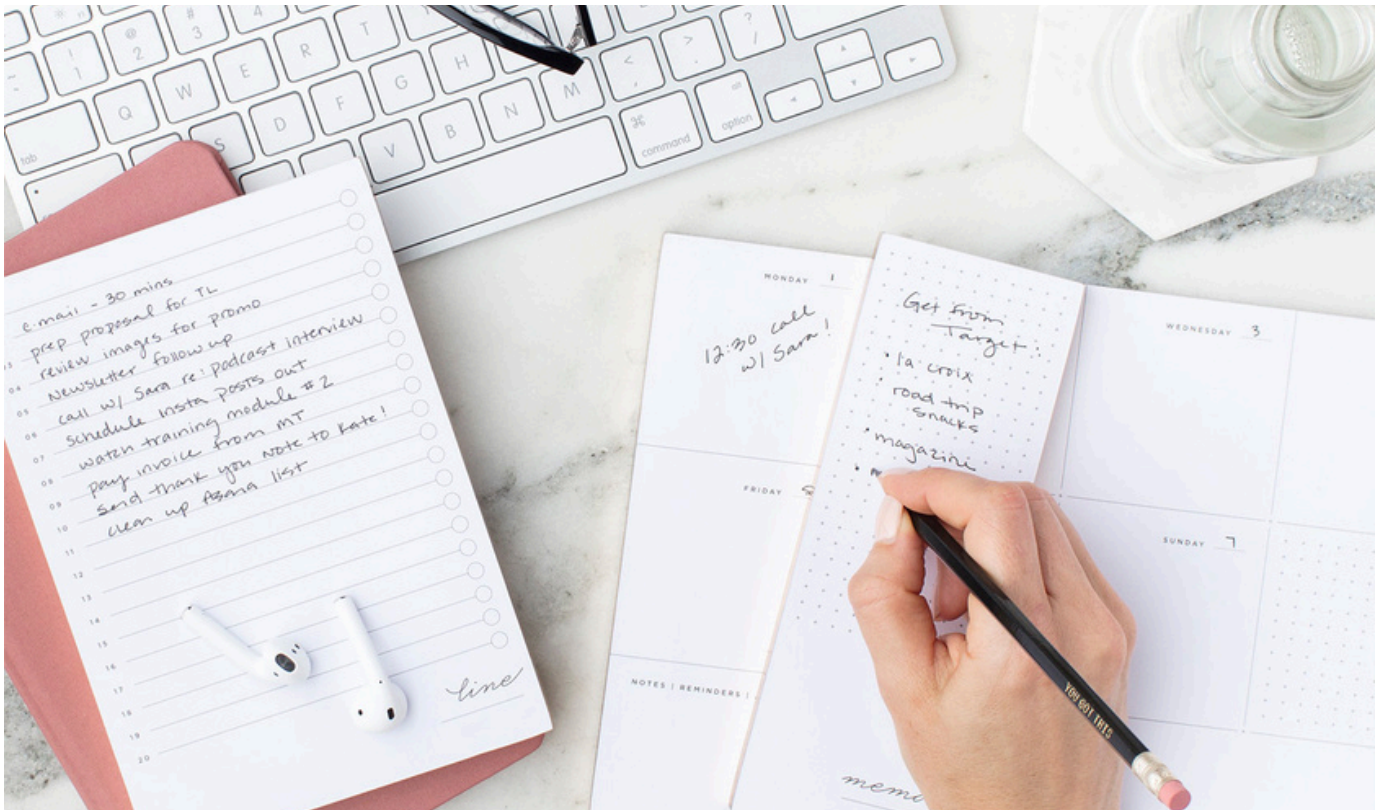 ~
! 1
@ 2
# 3
$ 4
Q W E R T
S D F G H
V B N M
< ,
> .
? /
tab
⌘ command
alt option
e-mail - 30 mins
prep proposal for TL
03 review images for promo
04 Newsletter follow up
05 call w/ Sara re: podcast interview
06 schedule insta posts out
07 watch training module #2
08 pay invoice from MT
09 send thank you note to Kate!
10 clean up Asana list
11
12
13
14
15
16
17
18
19
20
line
MONDAY 1
12:30 call
w/ Sara!
FRIDAY
NOTES | REMINDERS |
Get from
Target:
• la croix
• road trip
snacks
• magazine
•
memo
WEDNESDAY 3
SUNDAY 7
YOU GOT THIS